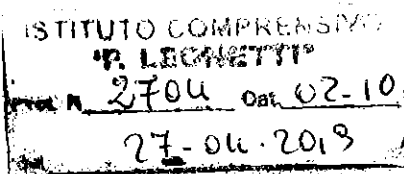 ISTITUTO COMPRENSIVO
"P. LEONETTI"
Prot. N. 2704 Dat. 02-10
27-04.2019